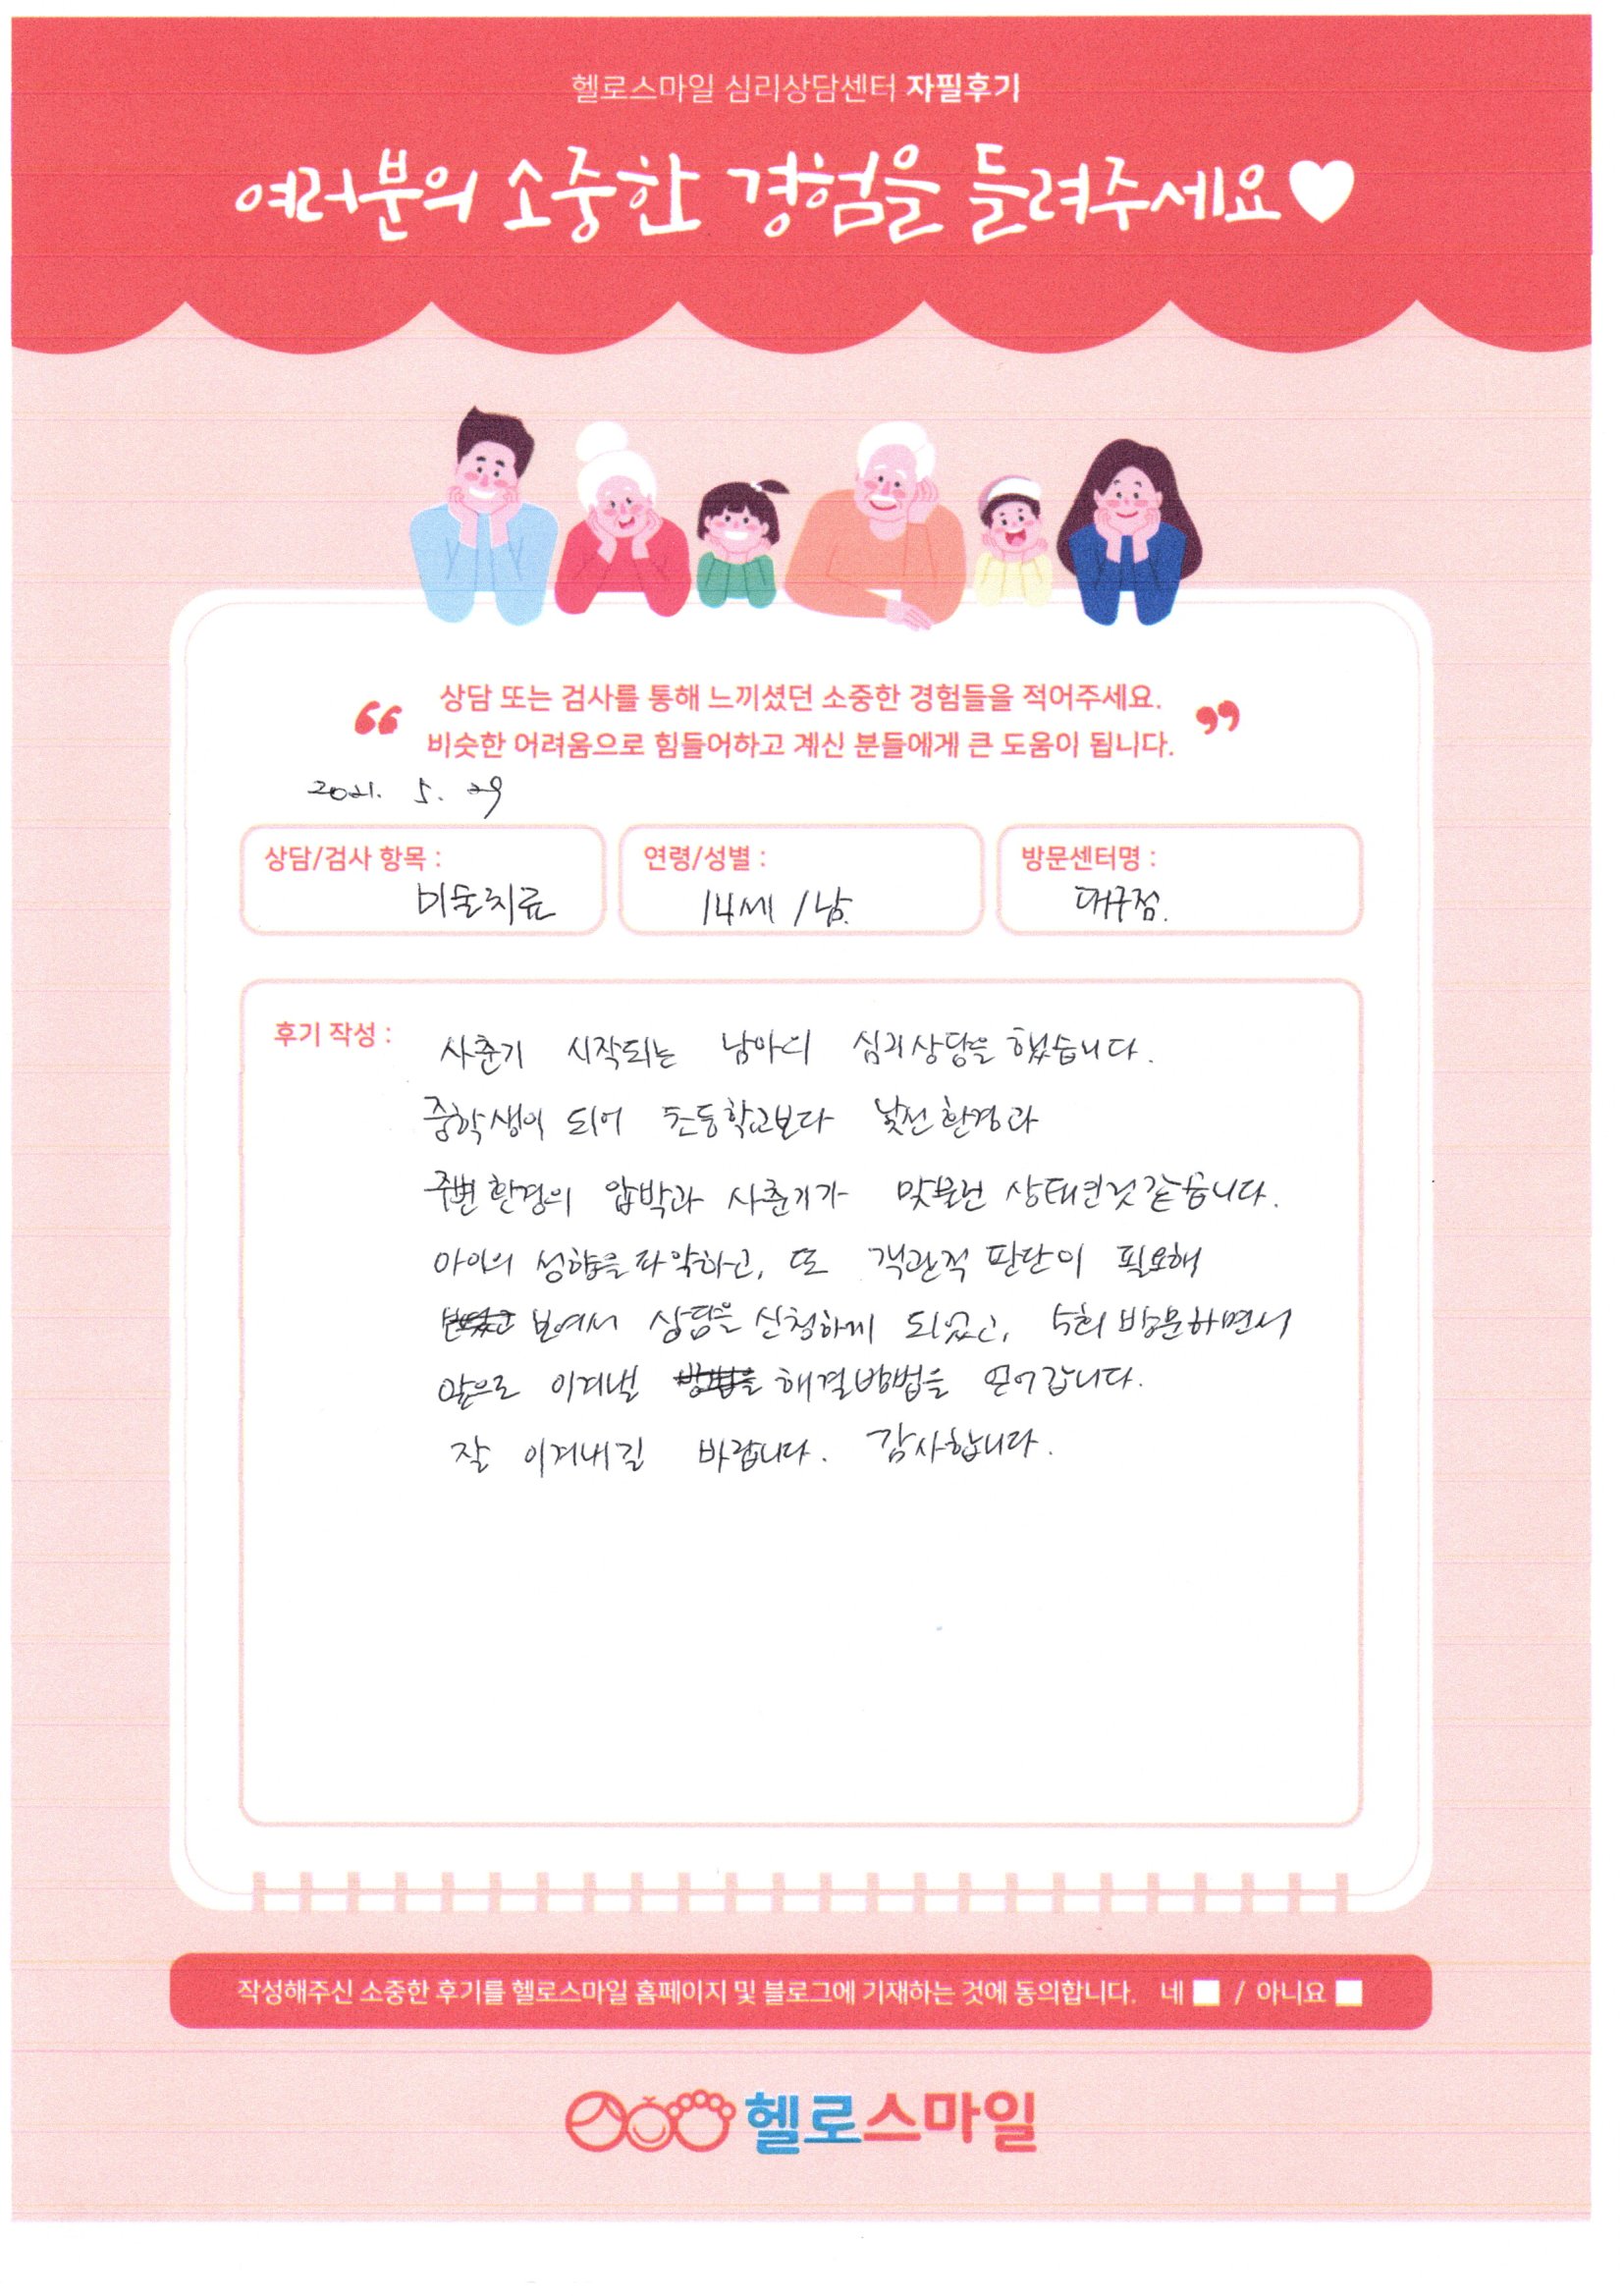 헬로스마일 심리상담센터 자필후기
여러분의 소중한 경험을 들려주세요♥
“ 상담 또는 검사를 통해 느끼셨던 소중한 경험들을 적어주세요. ”
비슷한 어려움으로 힘들어하고 계신 분들에게 큰 도움이 됩니다.
2021. 5. 29
상담/검사 항목 : 미술치료
연령/성별 : 14세 / 남.
방문센터명 : 대구점.
후기 작성 : 사춘기 시작되는 남아의 심리상담을 했습니다.
중학생이 되어 초등학교보다 낯선 환경과
주변 환경의 압박과 사춘기가 맞물린 상태인것 같습니다.
아이의 성향을 파악하고, 또 객관적 판단이 필요해
보여서 상담을 신청하게 되었고, 5회 방문하면서
앞으로 이겨낼 해결방법을 얻어갑니다.
잘 이겨내길 바랍니다. 감사합니다.
작성해주신 소중한 후기를 헬로스마일 홈페이지 및 블로그에 기재하는 것에 동의합니다. 네 / 아니요
헬로스마일